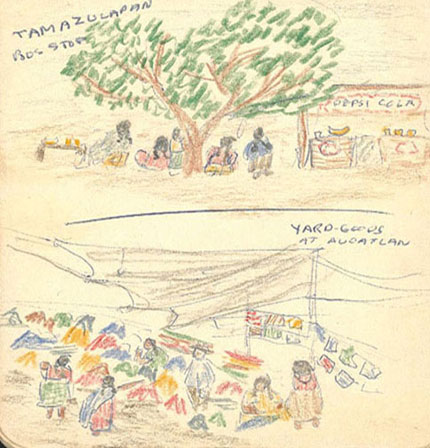 TAMAZULAPAN
BUS STOP
PEPSI COLA
YARD-GOODS
AT